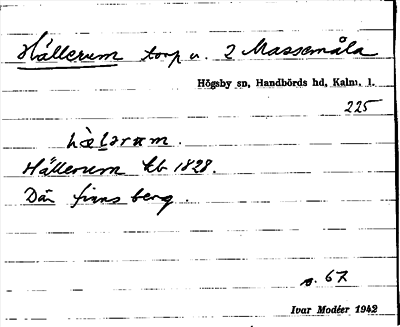 Hällerum torp u. 2 Massemåla
Högsby sn, Handbörds hd, Kalm. l.
225
hæ̀lərum.
Hällerum kb 1828.
Där finns berg.
s. 67
Ivar Modéer 1942